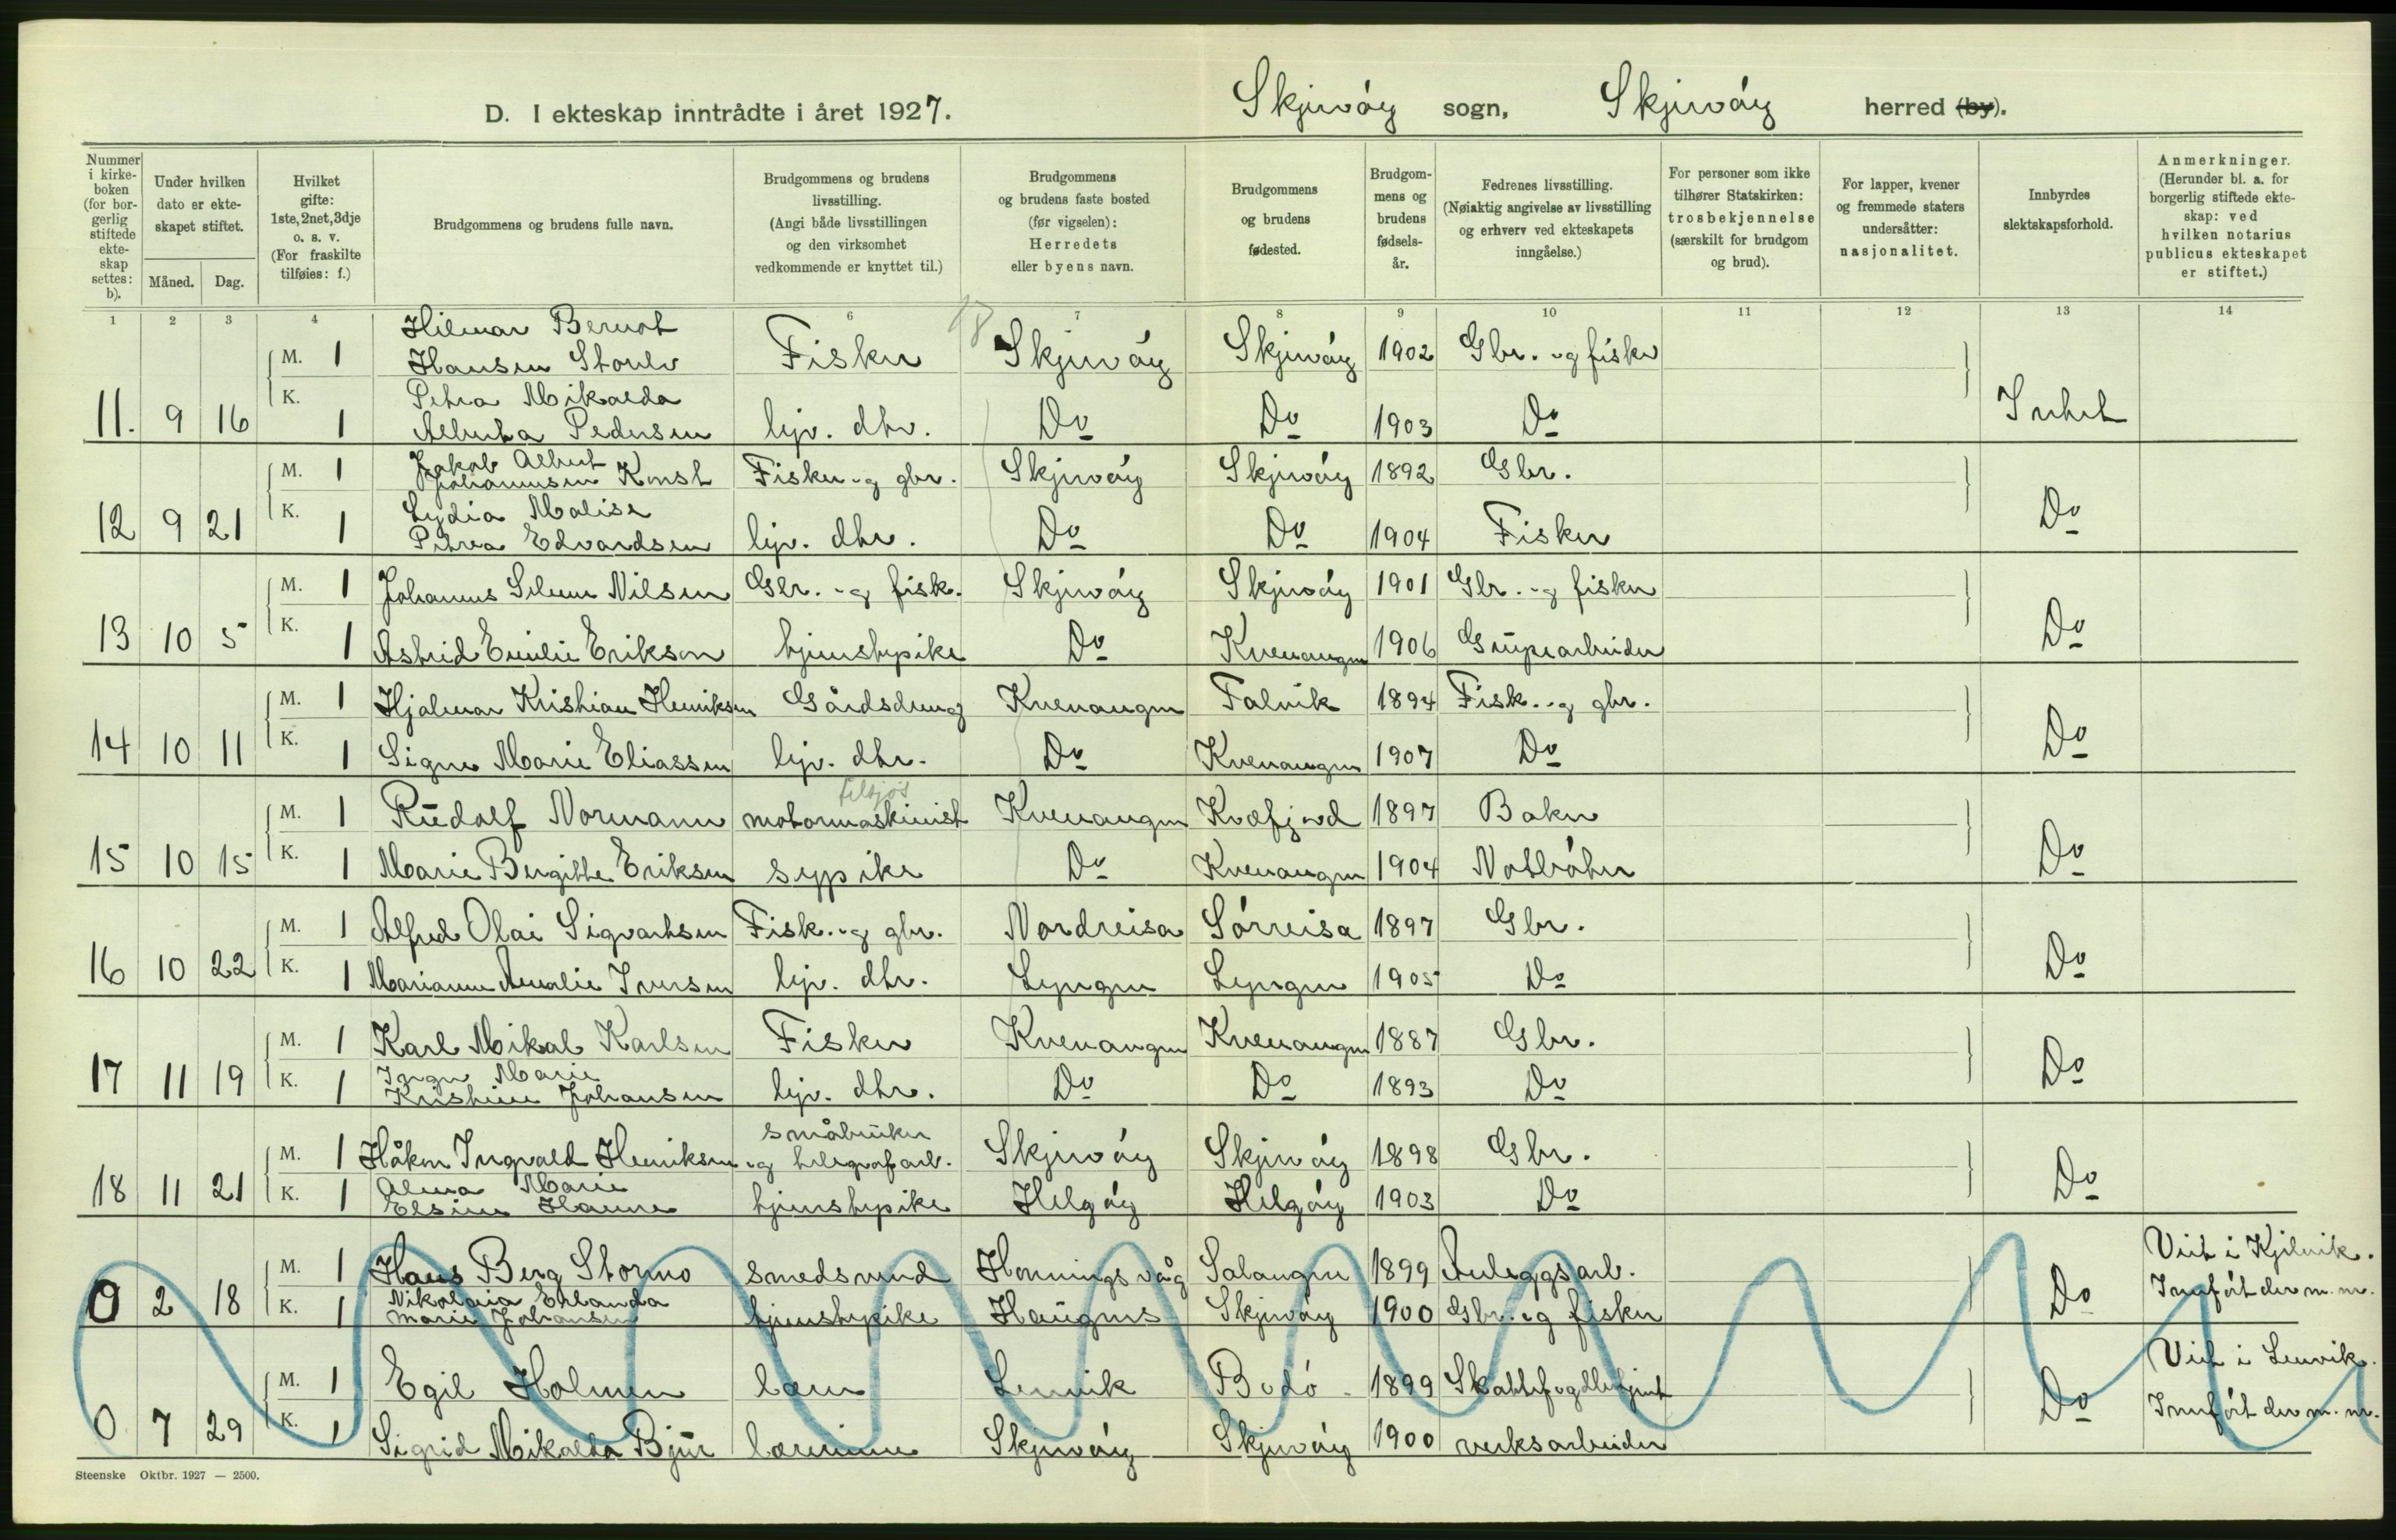 D. I ekteskap inntrådte i året 1927. Skjervøy sogn, Skjervøy herred (by).
Nummer i kirke-boken (for bor-gerlig stiftede ekte-skap settes: b).
Under hvilken dato er ekte-skapet stiftet.
Måned. Dag.
Hvilket gifte: 1ste, 2net, 3dje o. s. v. (For fraskilte tilføies: f.)
Brudgommens og brudens fulle navn.
Brudgommens og brudens livsstilling. (Angi både livsstillingen og den virksomhet vedkommende er knyttet til.)
Brudgommens og brudens faste bosted (før vigselen): Herredets eller byens navn.
Brudgommens og brudens fødested.
Brudgom-mens og brudens fødsels-år.
Fedrenes livsstilling. (Nøiaktig angivelse av livsstilling og erhverv ved ekteskapets inngåelse.)
For personer som ikke tilhører Statskirken: trosbekjennelse (særskilt for brudgom og brud).
For lapper, kvener og fremmede staters undersåtter: nasjonalitet.
Innbyrdes slektskapsforhold.
Anmerkninger. (Herunder bl. a. for borgerlig stiftede ekte-skap: ved hvilken notarius publicus ekteskapet er stiftet.)
1 2 3 4 6 7 8 9 10 11 12 13 14
18
Hilmar Bernot
M. 1 Hansen Storslv Fisker Skjervøy Skjervøy 1902 Gbr. og fisker
K. Petra Mikalda
11. 9 16 1 Alberta Pedersen hjv. dtr. Do Do 1903 Do Intet
M. 1 Jakob Albert
Johannesen Konst Fisker og gbr. Skjervøy Skjervøy 1892 Gbr.
K. Lydia Malise
12 9 21 1 Petrea Edvardsen hjv. dtr. Do Do 1904 Fisker Do
M. 1 Johannes Selmer Nilsen Gbr. og fisk. Skjervøy Skjervøy 1901 Gbr. og fisker
13 10 5 K. 1 Astrid Emilie Erikson tjenestepike Do Kvenangen 1906 Grubearbeider Do
M. 1 Hjalmar Kristian Henriksen Gårdsdreng Kvenangen Talvik 1894 Fisk. og gbr.
14 10 11 K. 1 Signe Marie Eliassen hjv. dtr. Do Kvenangen 1907 Do Do
tilsjøs
M. 1 Rudolf Normann motormaskinist Kvenangen Kvæfjord 1897 Baker
15 10 15 K. 1 Marie Bergitte Eriksen sypike Do Kvenangen 1904 Notbøter Do
M. 1 Alfred Olai Sigvartsen Fisk. og gbr. Nordreisa Sørreisa 1897 Gbr.
16 10 22 K. 1 Marianne Amalie Iversen hjv. dtr. Lyngen Lyngen 1905 Do Do
M. 1 Karl Mikal Karlsen Fisker Kvenangen Kvenangen 1887 Gbr.
K. Inger Marie
17 11 19 1 Kristine Johansen hjv. dtr. Do Do 1893 Do Do
småbruker
M. 1 Håkon Ingvald Henriksen og telegrafarb. Skjervøy Skjervøy 1898 Gbr.
K. Alma Marie
18 11 21 1 Elsine Hanne tjenestepike Helgøy Helgøy 1903 Do Do
M. 1 Hans Berg Stormo smedsvend Honningsvåg Salangen 1899 Anleggsarb. Viet i Kjelvik.
K. Nikolaia Erlanda
0 2 18 1 Marie Johansen tjenestepike Haugnes Skjervøy 1900 Gbr. og fisker Do Innført der m. nr.
M. 1 Egil Holmen lærer Lenvik Bodø 1899 Skattefogdbetjent Viet i Lenvik.
0 7 29 K. 1 Sigrid Mikalda Bjur lærerinne Skjervøy Skjervøy 1900 verksarbeider Do Innført der m. nr.
Steenske Oktbr. 1927 — 2500.